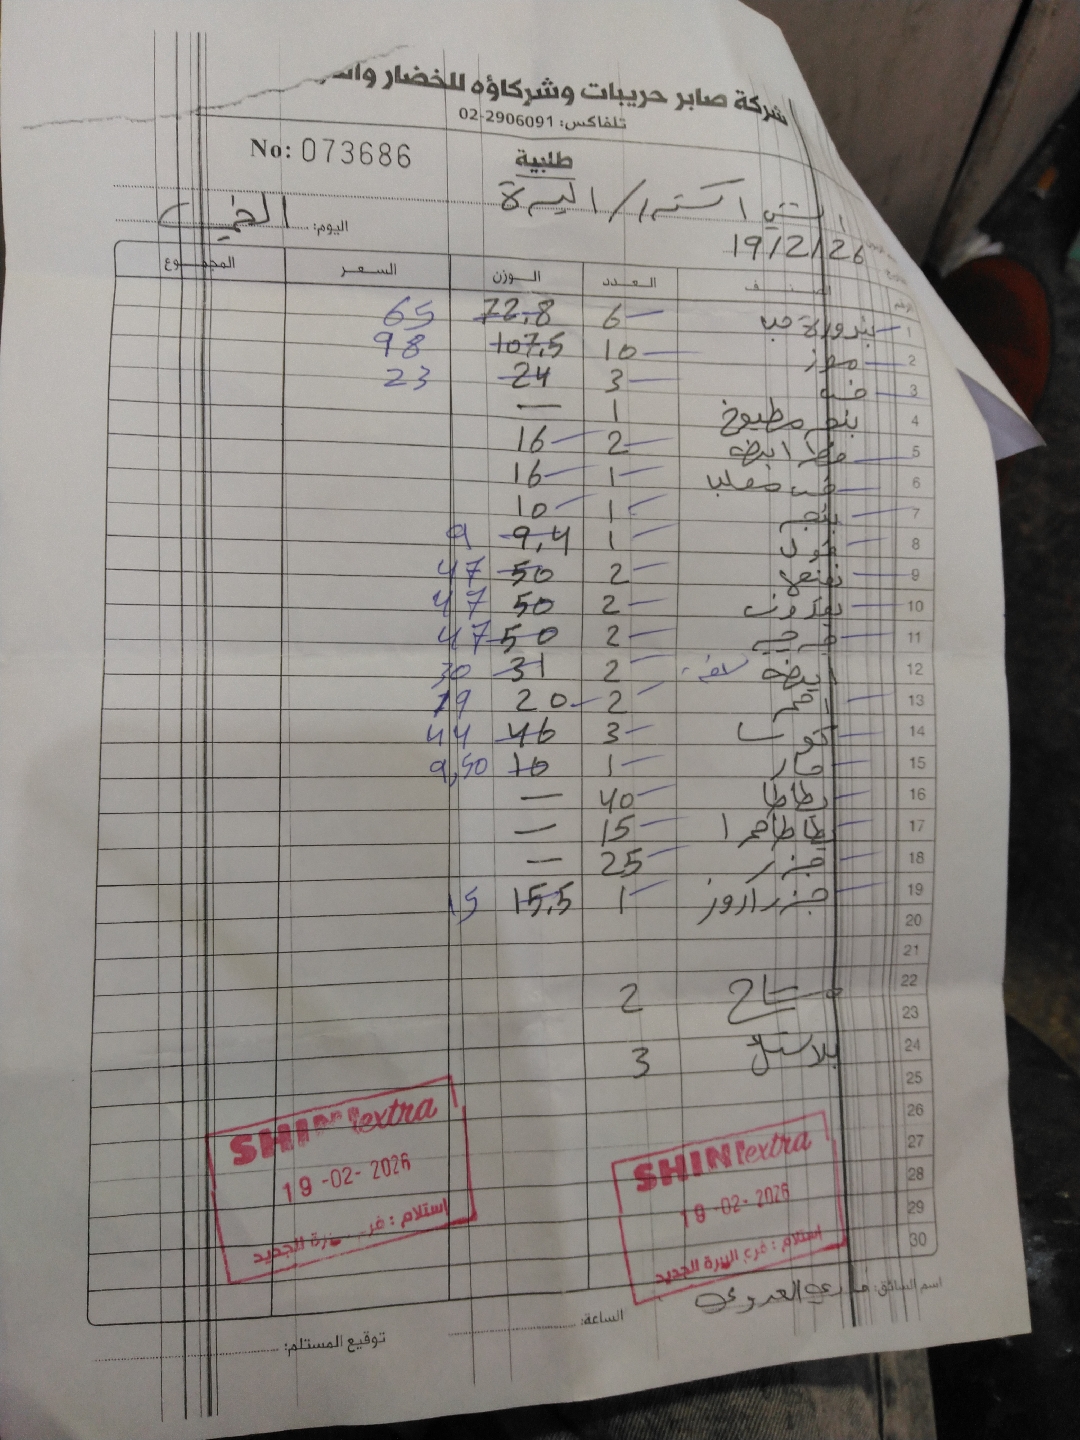 شركة صابر حريبات وشركاؤه للخضار
تلفاكس: 02-2906091
No: 073686
طلبية
اكسترا / البيرة
اليوم: الخميس
19/2/26
الصنف العدد الوزن السعر المجموع
1 بندورة حب 6 72,8 65
2 موز 10 107,5 98
3 خس 3 24 23
4 1 —
5 2 16
6 1 16
7 1 10
8 فول 1 9,4 9
9 نعنع 2 50 47
10 بقدونس 2 50 47
11 جرجير 2 50 47
12 ابيض 2 31 30
13 احمر 2 20 19
14 كوسا 3 46 44
15 خيار 1 10 9,50
16 بطاطا 40 —
17 بطاطا حمرا 15 —
18 جزر 25 —
19 جزر اروز 1 15,5 15
20
21
22
23 2
24
25 بلاستك 3
26
27
28
29
30
SHINI extra
19-02-2026
استلام: فرع البيرة الجديد
SHINI extra
19-02-2026
استلام: فرع البيرة الجديد
اسم السائق:
الساعة:
توقيع المستلم: